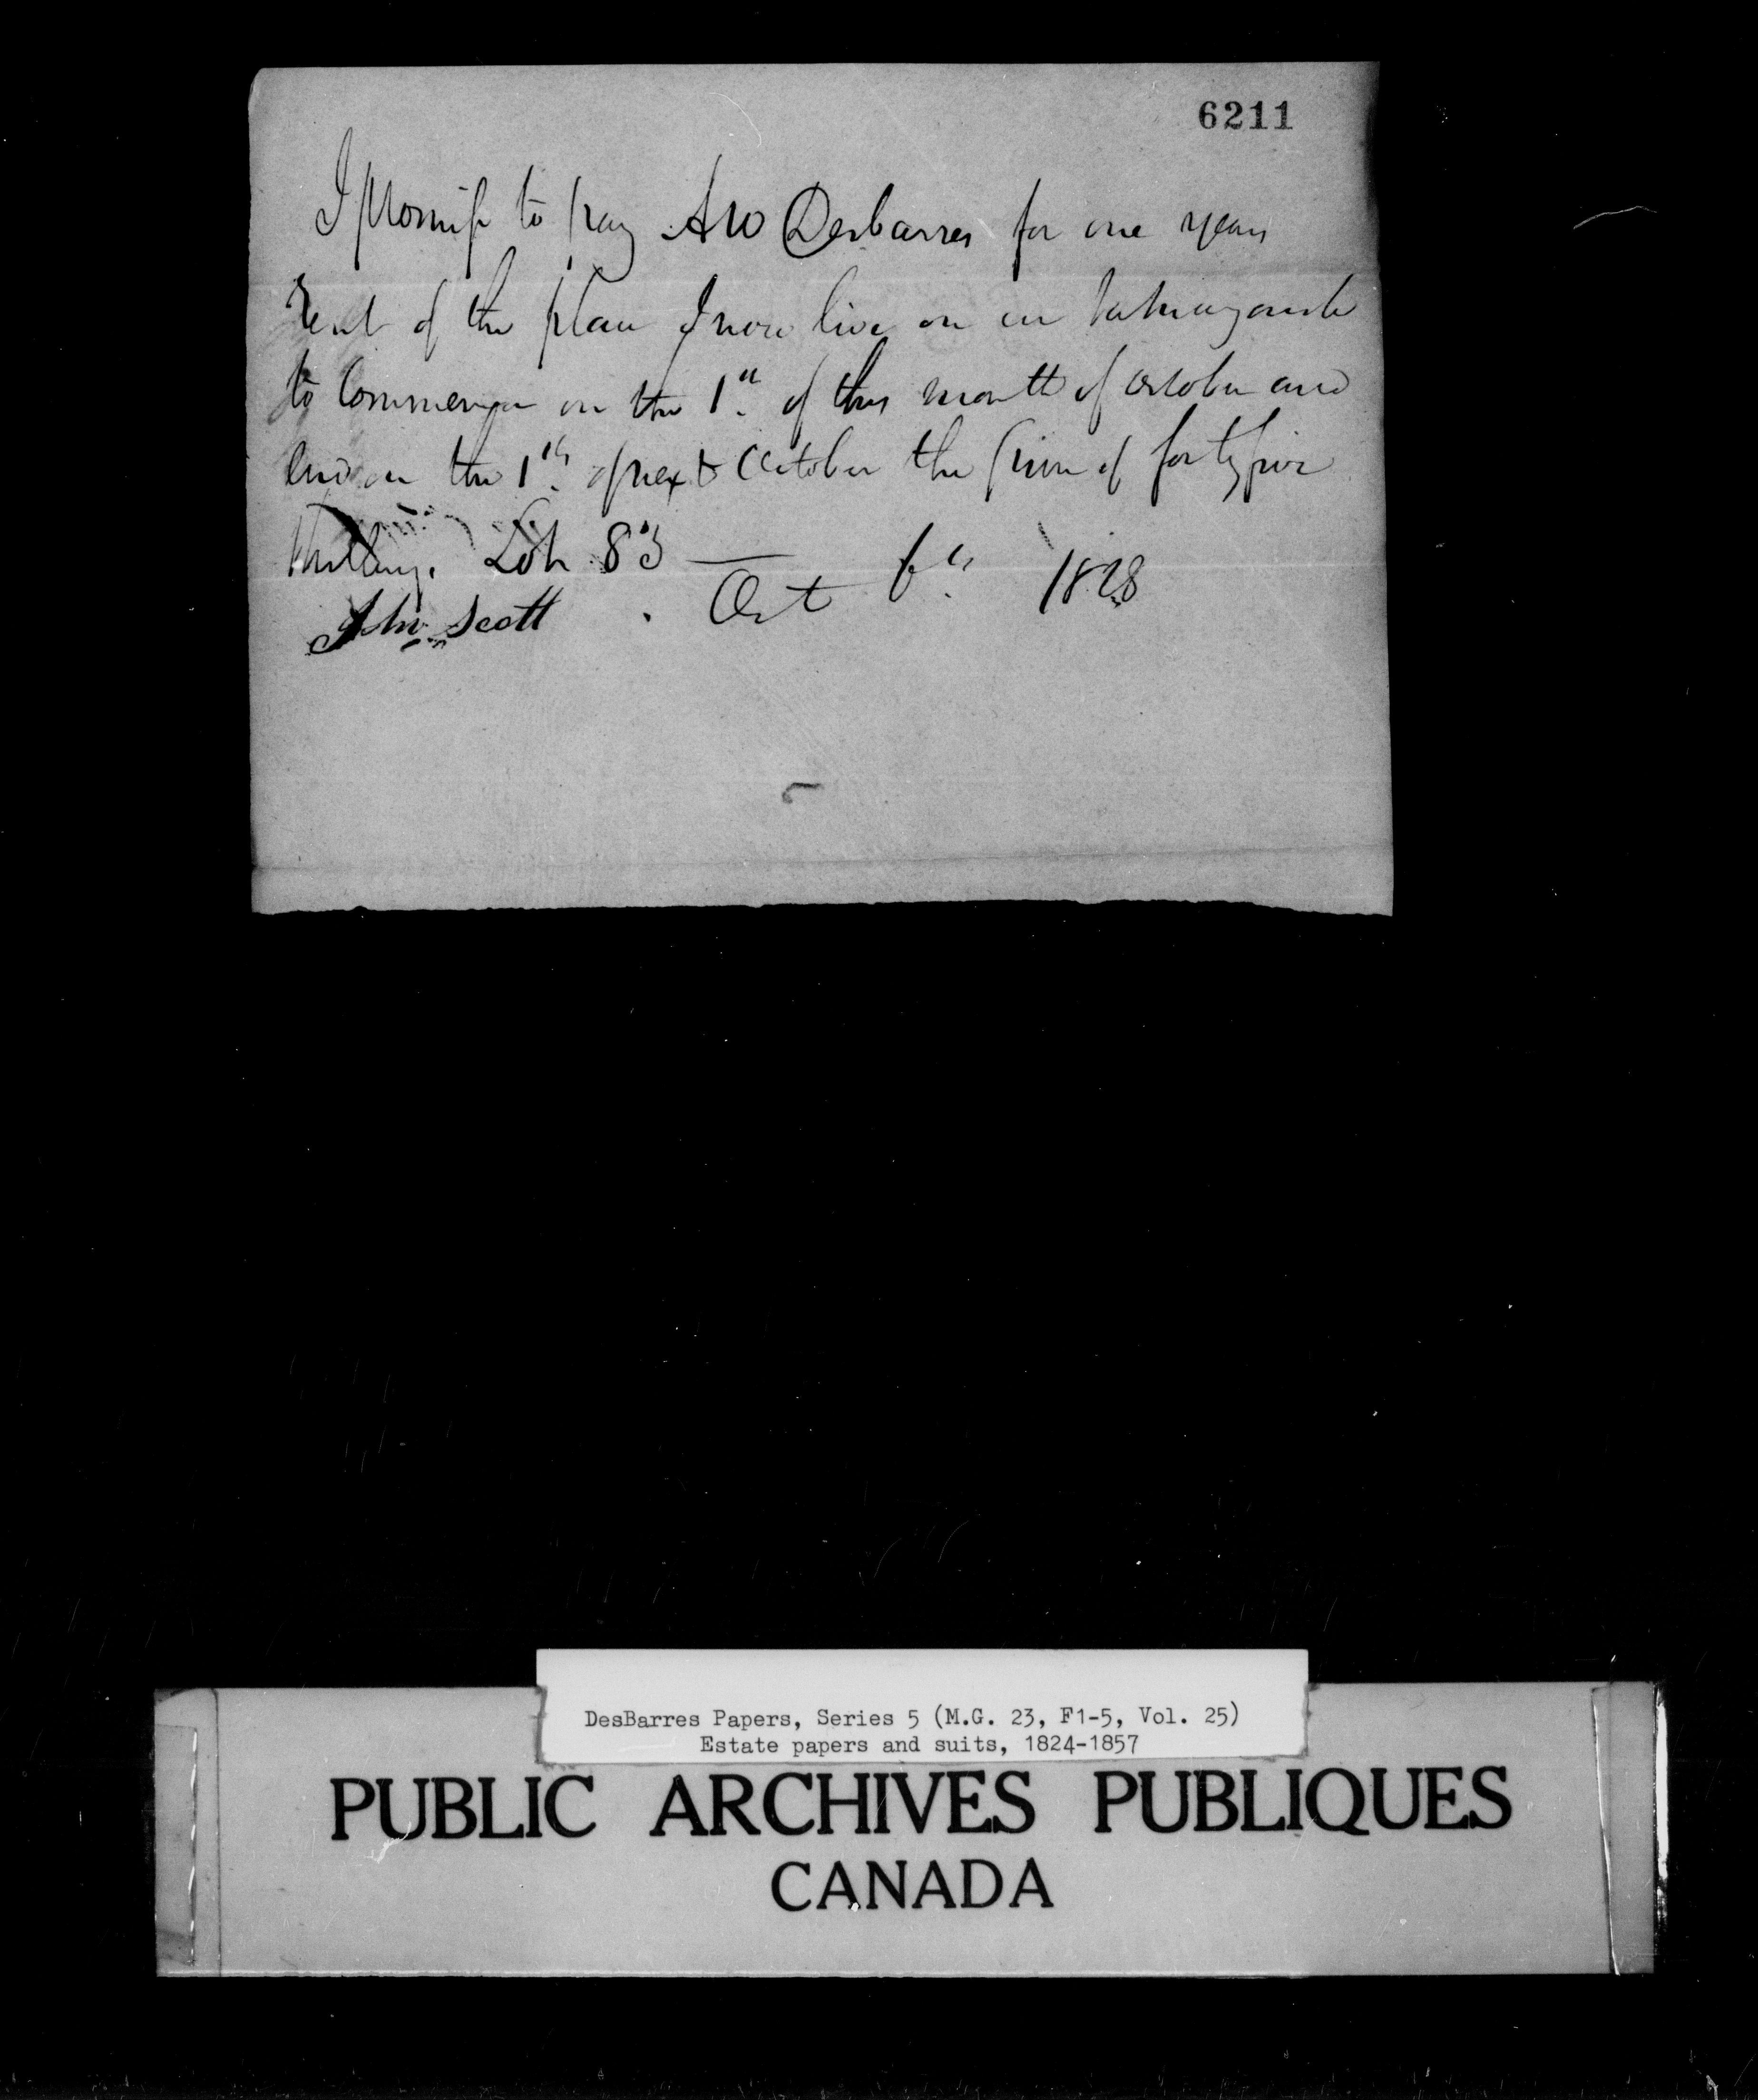 6211
I promise to pay AW Desbarres for one years
Rent of the place I now live on in Tatmagouche
to Commence on the 1st of this month of October and
end on the 1th of next October the sum of forty five
shillings. Lot 83 —
John Scott . Oct 6th 1828
DesBarres Papers, Series 5 (M.G. 23, F1-5, Vol. 25)
Estate papers and suits, 1824-1857
PUBLIC ARCHIVES PUBLIQUES
CANADA